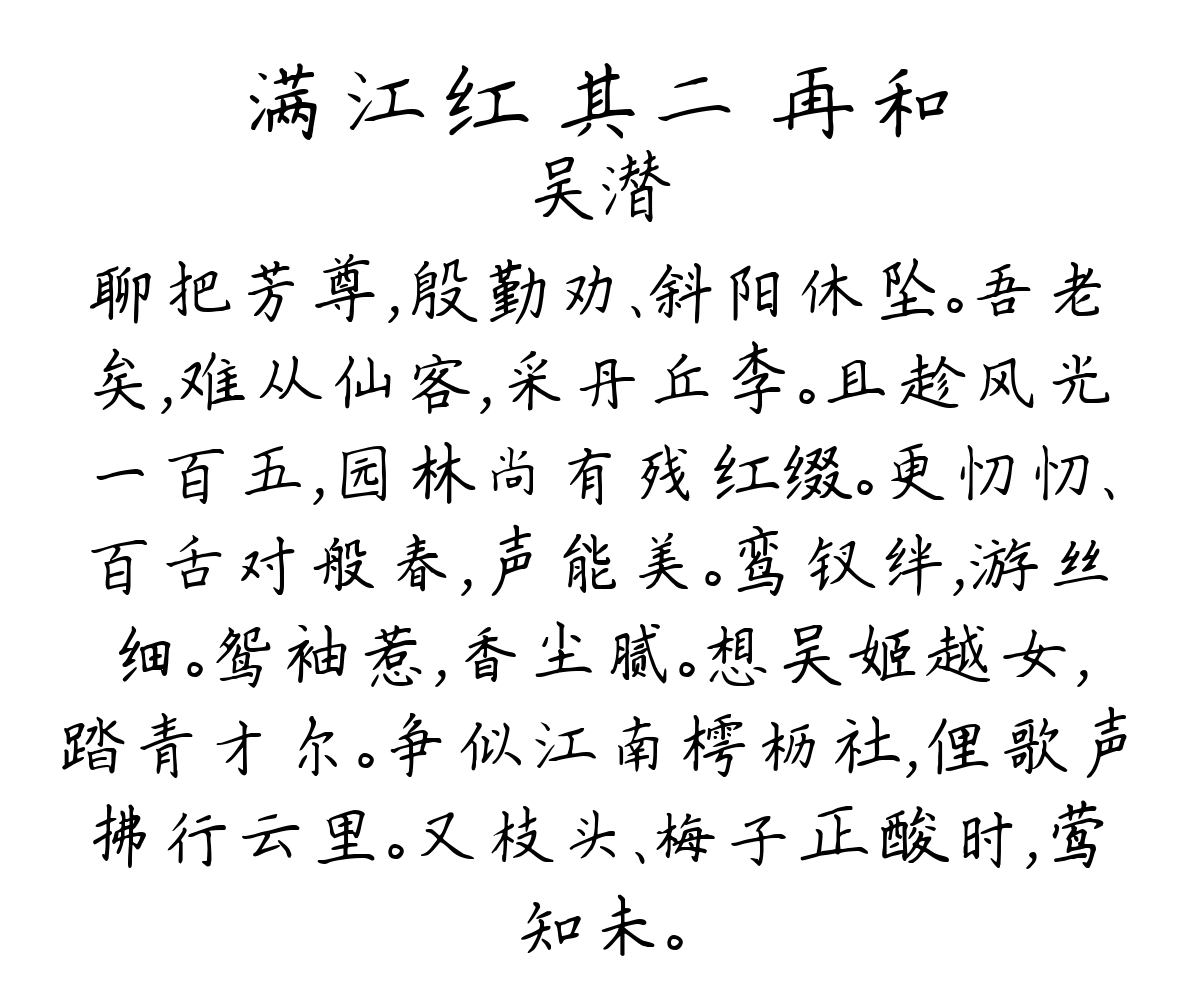 满江红 其二 再和
吴潜
聊把芳尊,殷勤劝、斜阳休坠。吾老
矣,难从仙客,采丹丘李。且趁风光
一百五,园林尚有残红缀。更忉忉、
百舌对般春,声能美。鸾钗绊,游丝
细。鸳袖惹,香尘腻。想吴姬越女,
踏青才尔。争似江南樗枥社,俚歌声
拂行云里。又枝头、梅子正酸时,莺
知未。